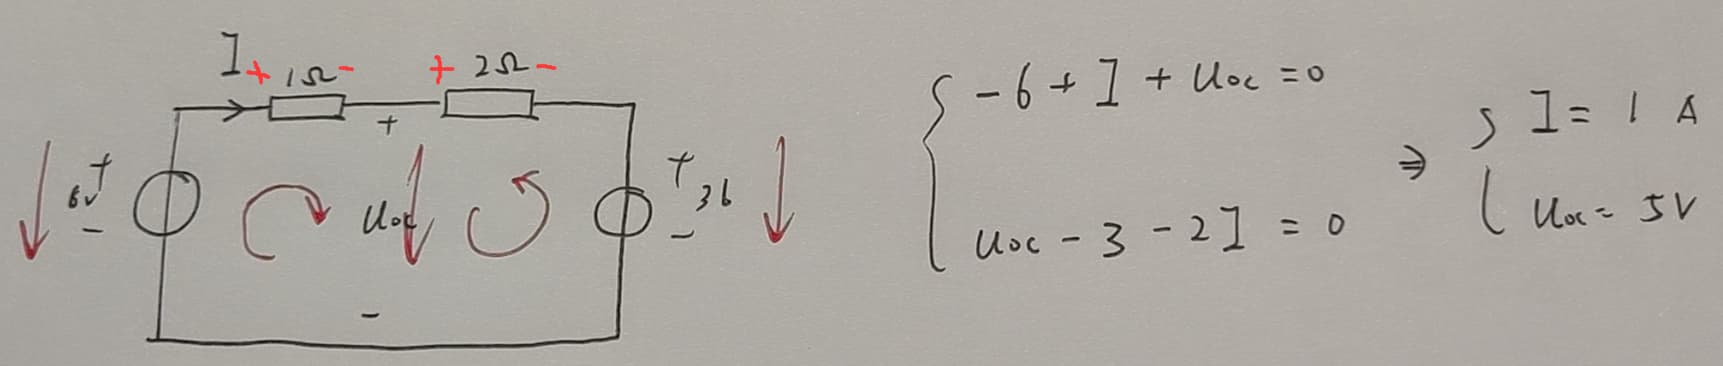 I + 1Ω - + 2Ω -
+
6V + - uoc + 36 -
-
- 6 + I + uoc = 0
uoc - 3 - 2I = 0
⇒ I = 1 A
uoc = 5V